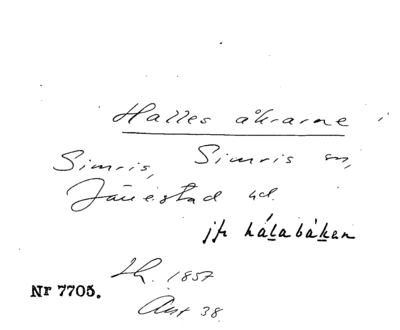 Halles åkrarne i
Simris, Simris sn,
Järrestad hd.
jfr hálabákan
Lh. 1857
Akt 38.
Nr 7705.